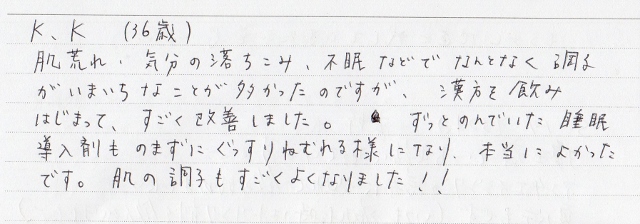 K、K （36歳）
肌荒れ・気分の落ちこみ、不眠などでなんとなく調子
がいまいちなことが多かったのですが、漢方を飲み
はじまって、すごく改善しました。 ずっとのんでいた睡眠
導入剤ものまずにぐっすりねむれる様になり、本当によかった
です。肌の調子もすごくよくなりました！！